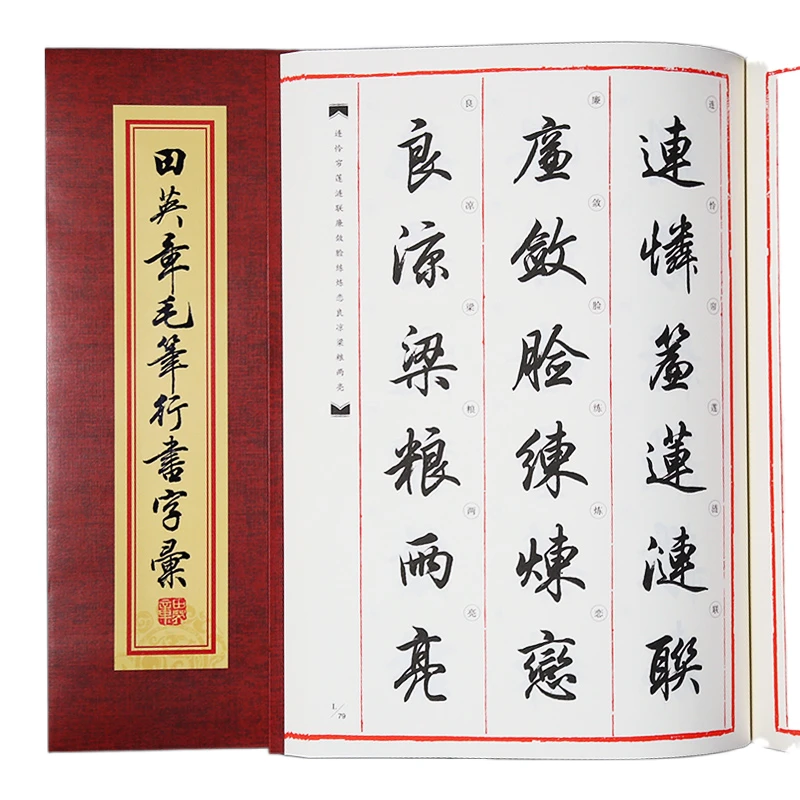 田英章毛筆行書字彙
連憐簾蓮漣聯
连怜帘莲涟联
廉斂臉練煉戀
廉敛脸练炼恋
良涼梁粮兩亮
良凉梁粮两亮
连怜帘莲涟联廉敛脸练炼恋良凉梁粮两亮
L/79